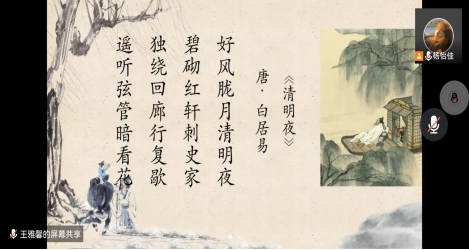 《清明夜》
唐·白居易
好风胧月清明夜
碧砌红轩刺史家
独绕回廊行复歇
遥听弦管暗看花
杨怡佳
王雅馨的屏幕共享